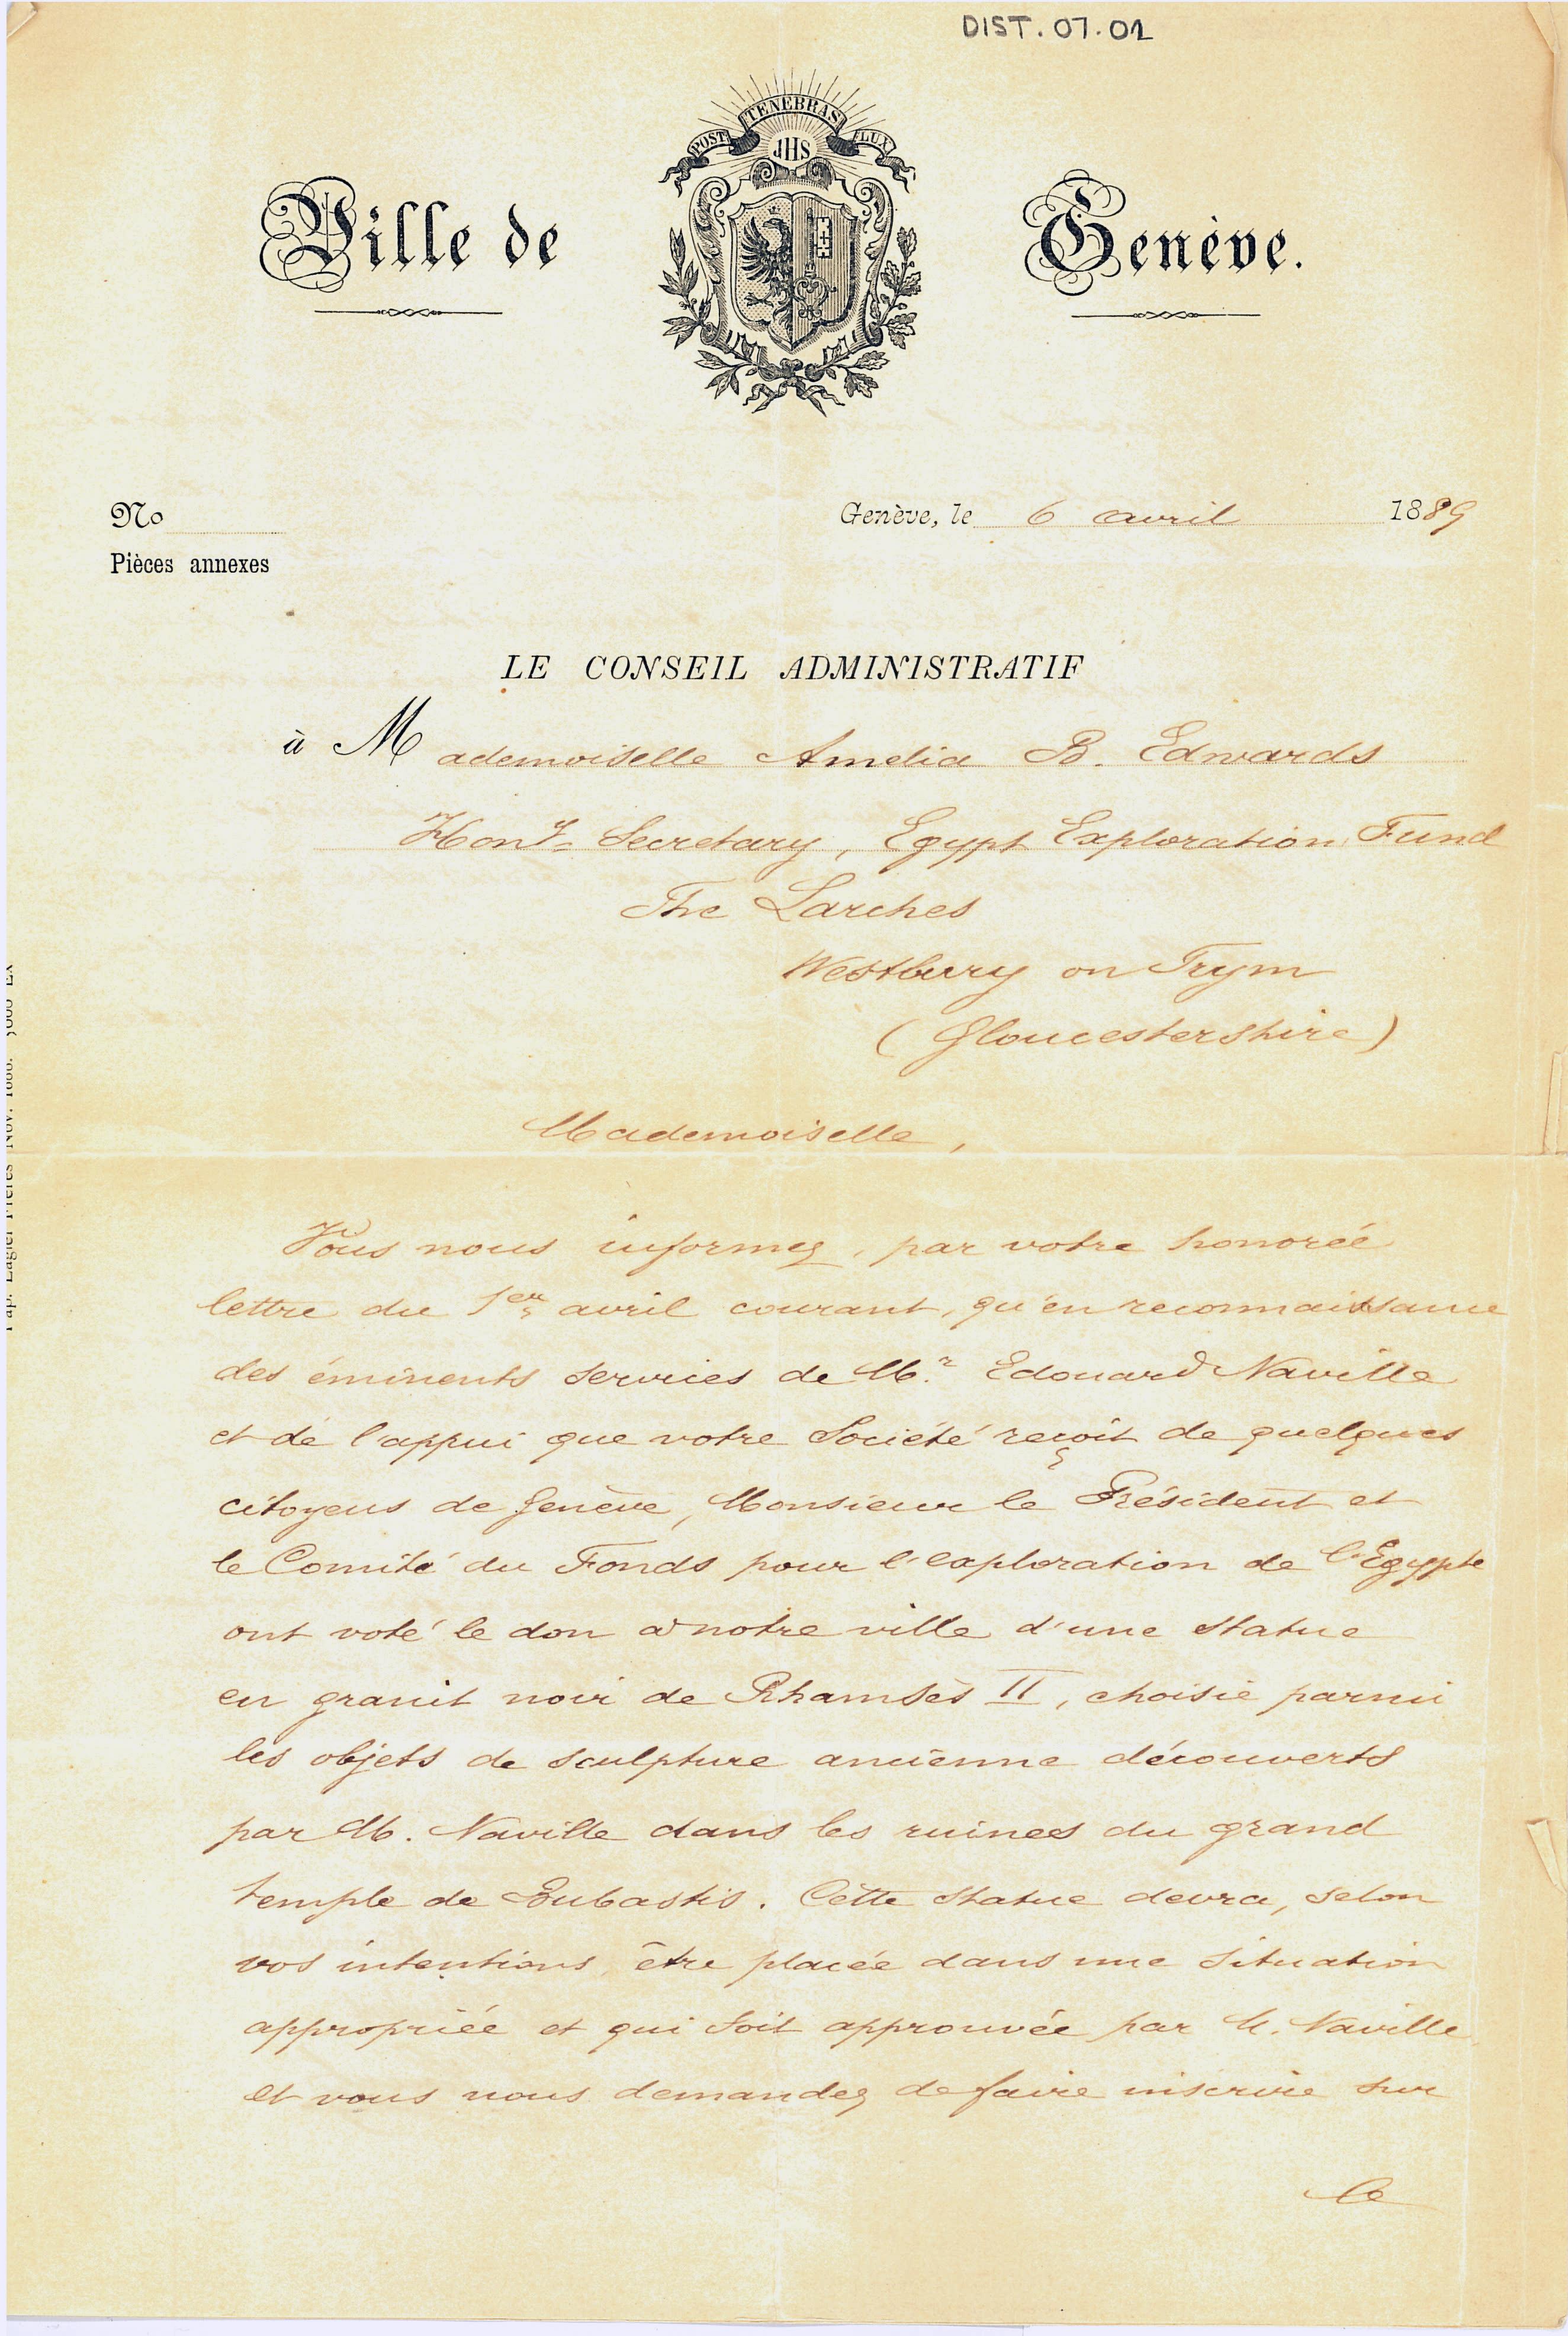 DIST. 07.01
POST TENEBRAS LUX
JHS
Ville de Genève.
No
Genève, le 6 avril 1889
Pièces annexes
LE CONSEIL ADMINISTRATIF
à Mademoiselle Amelia B. Edwards
Hony. Secretary, Egypt Exploration Fund
The Larches
Westbury on Trym
(Gloucestershire)
Mademoiselle,
Vous nous informez, par votre honorée
lettre du 1er avril courant, qu'en reconnaissance
des éminents services de Mr. Edouard Naville
et de l'appui que votre Société reçoit de quelques
citoyens de Genève, Monsieur le Président et
le Comité du Fonds pour l'exploration de l'Egypte
ont voté le don à notre ville d'une statue
en granit noir de Rhamsès II, choisie parmi
les objets de sculpture ancienne découverts
par M. Naville dans les ruines du grand
temple de Bubastis. Cette statue devra, selon
vos intentions, être placée dans une situation
appropriée et qui soit approuvée par M. Naville
et vous nous demandez de faire inscrire sur
le